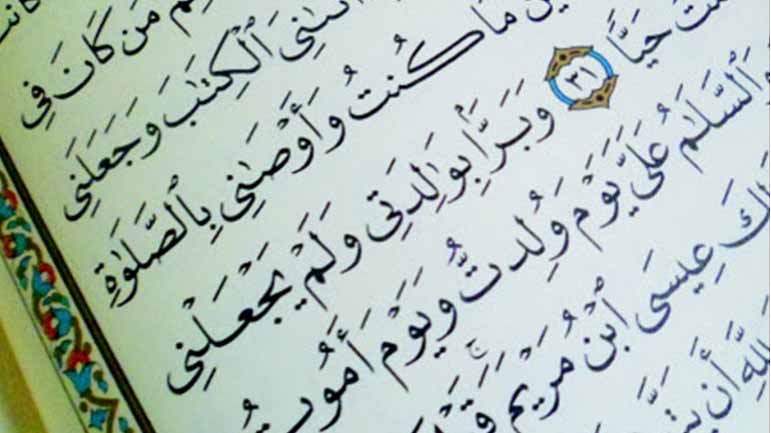 مَن كَانَ فِي
ٱلْكِتَٰبَ وَجَعَلَنِي
مَا كُنتُ وَأَوْصَٰنِي بِٱلصَّلَوٰةِ
حَيًّا ٣١ وَبَرَّۢا بِوَٰلِدَتِي وَلَمْ يَجْعَلْنِي
وَٱلسَّلَٰمُ عَلَيَّ يَوْمَ وُلِدتُّ وَيَوْمَ أَمُوتُ
عِيسَى ٱبْنُ مَرْيَمَ
لِلَّهِ أَن